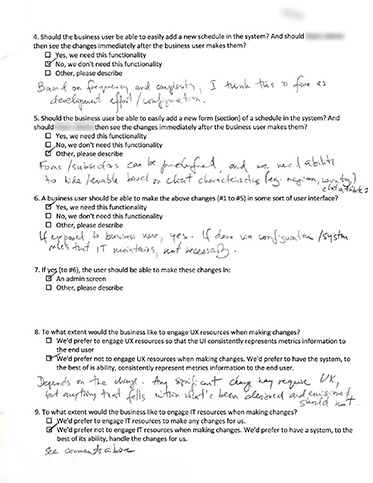 4. Should the business user be able to easily add a new schedule in the system? And should
then see the changes immediately after the business user makes them?
☐ Yes, we need this functionality
☑ No, we don't need this functionality
☐ Other, please describe
Based on frequency and complexity, I think this is fine as
development effort / configuration.
5. Should the business user be able to easily add a new form (section) of a schedule in the system? And
should then see the changes immediately after the business user makes them?
☐ Yes, we need this functionality
☐ No, we don't need this functionality
☑ Other, please describe
Forms/subsections can be predefined, and we need ability
to hide/enable based on client characteristics (eg. region, country)
6. A business user should be able to make the above changes (#1 to #5) in some sort of user interface?
☑ Yes, we need this functionality
☐ No, we don't need this functionality
☐ Other, please describe
If exposed to business user, yes. If done via configuration / system
rules that IT maintains, not necessarily.
7. If yes (to #6), the user should be able to make these changes in:
☑ An admin screen
☐ Other, please describe
8. To what extent would the business like to engage UX resources when making changes?
☐ We'd prefer to engage UX resources so that the UI consistently represents metrics information to
the end user
☑ We'd prefer not to engage UX resources when making changes. We'd prefer to have the system, to
the best of is ability, consistently represent metrics information to the end user.
Depends on the change. Any significant change may require UX,
but anything that falls within what's been designed and envisioned
should not.
9. To what extent would the business like to engage IT resources when making changes?
☐ We'd prefer to engage IT resources to make any changes for us.
☑ We'd prefer not to engage IT resources when making changes. We'd prefer to have a system, to the
best of its ability, handle the changes for us.
see comments above